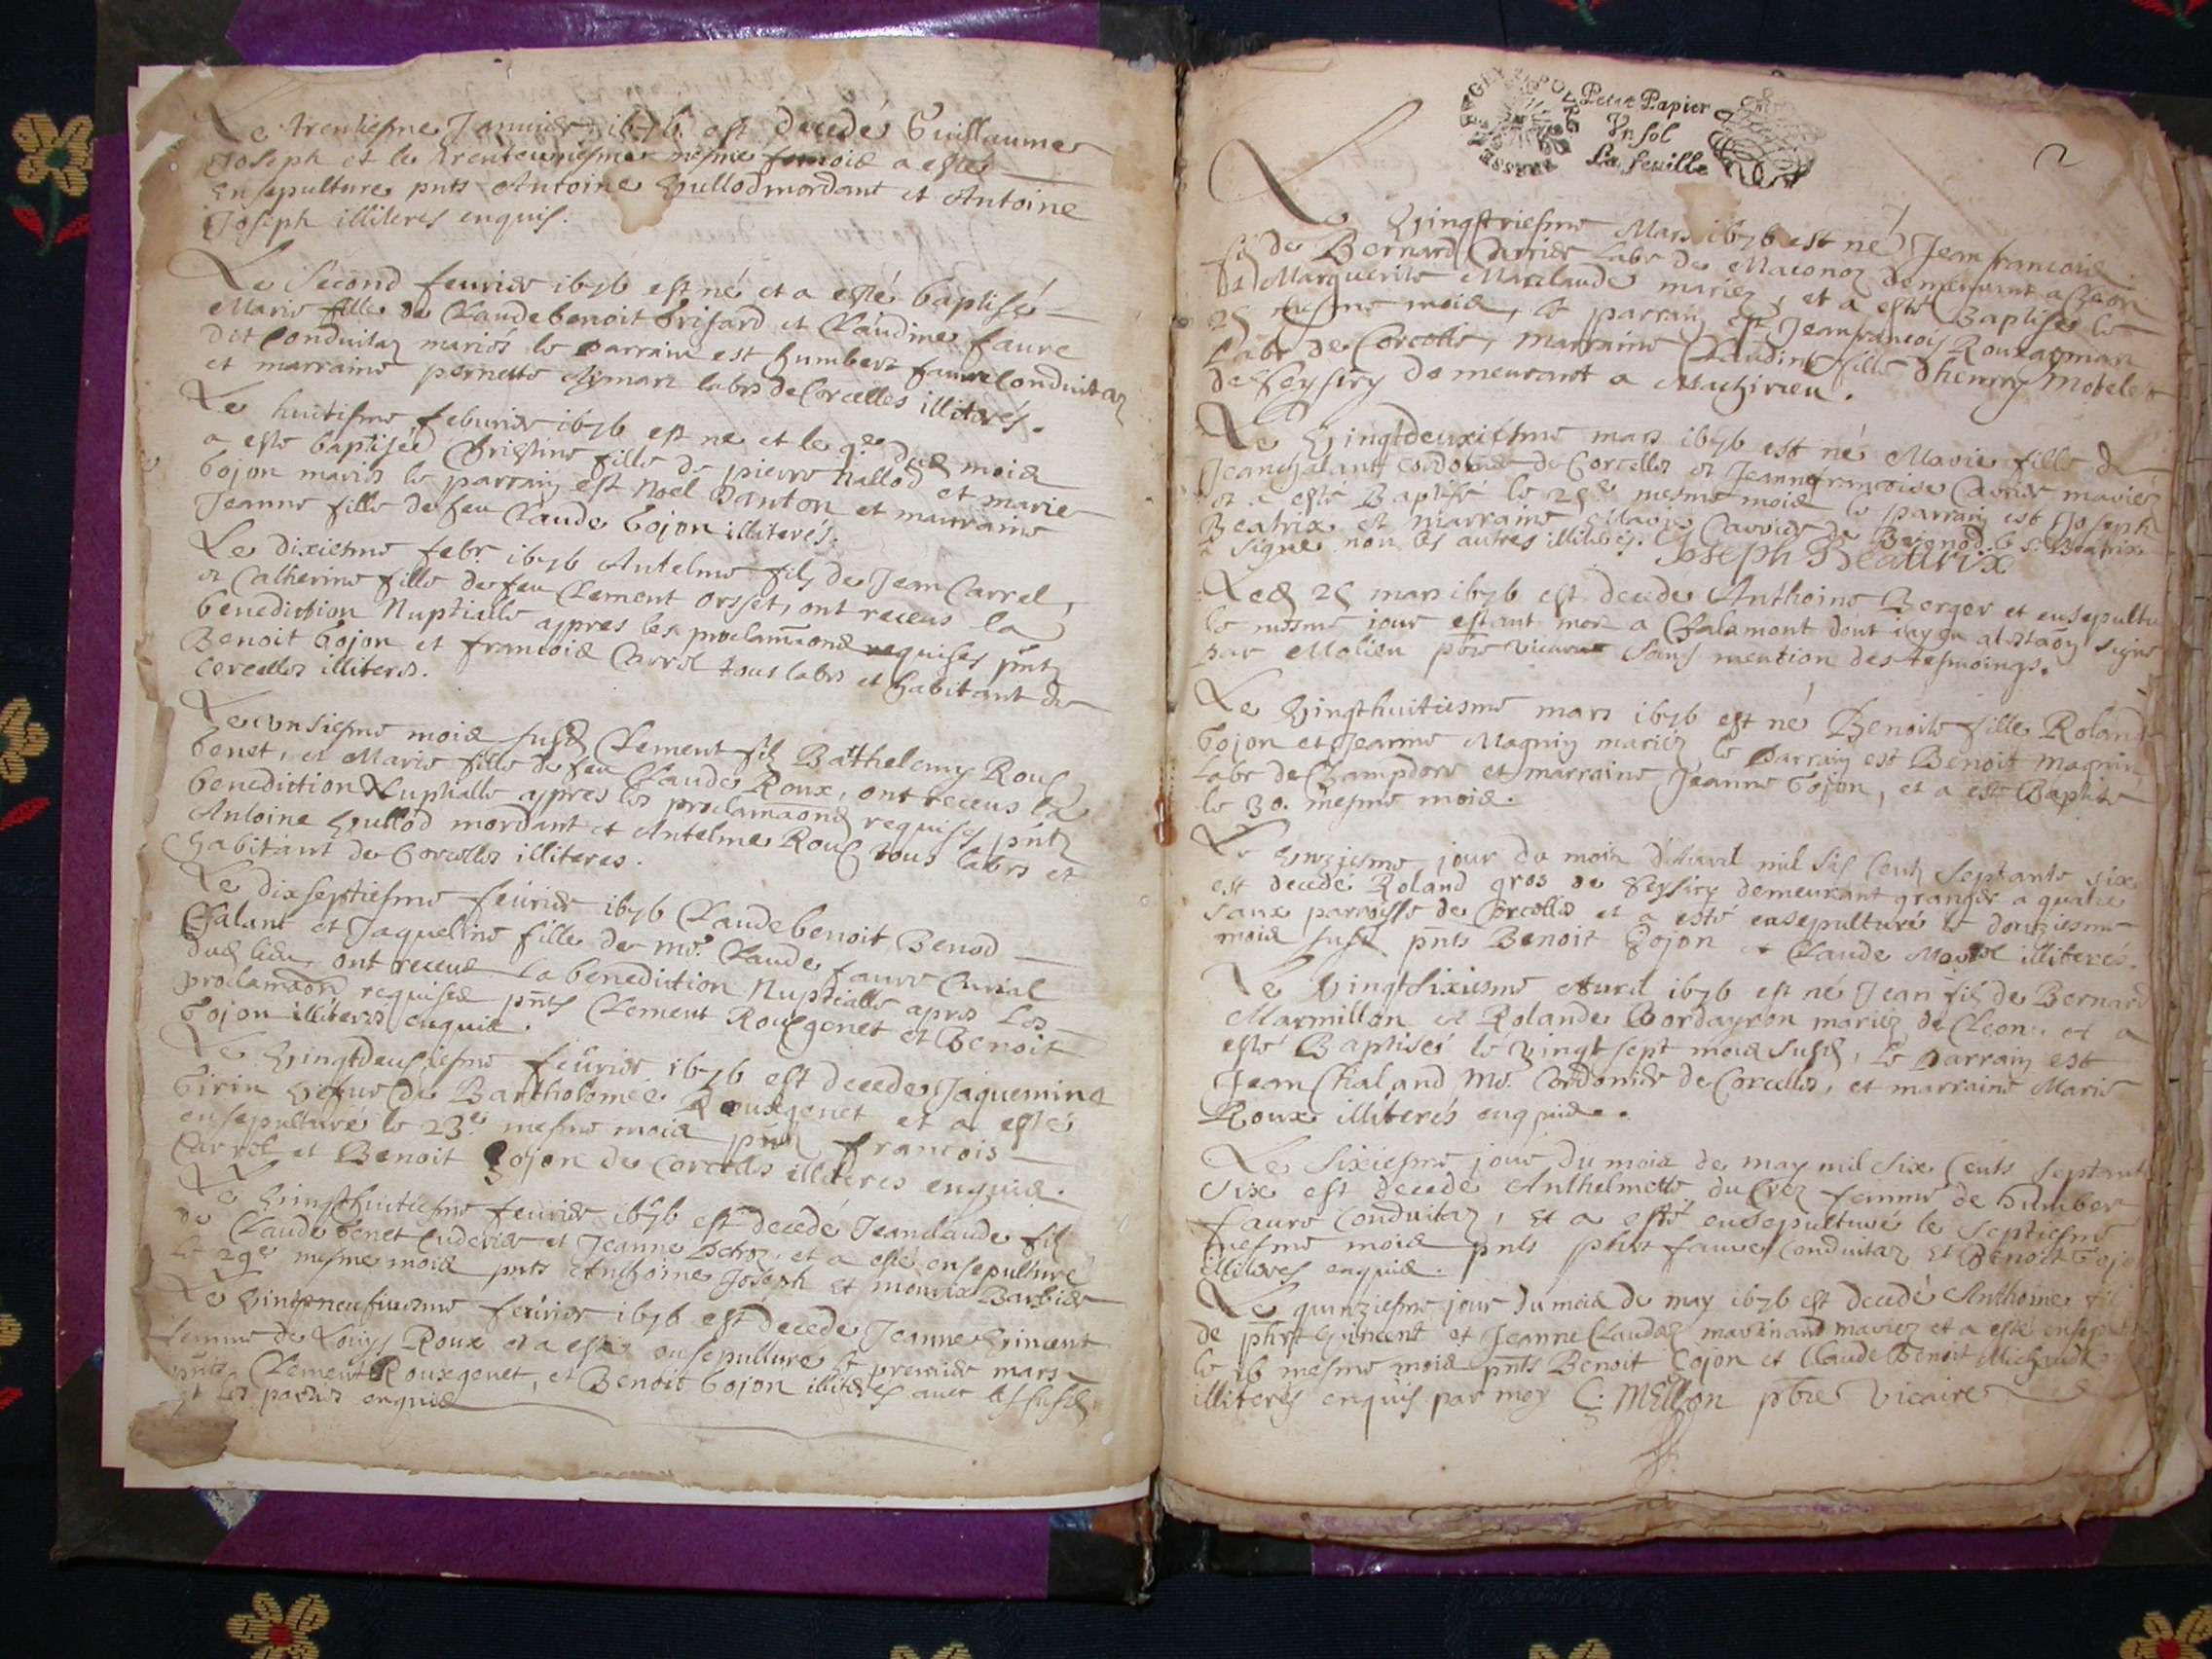 Le trentiesme Januier 1676 est decedé Guillaume
Joseph et le trenteuniesme mesme mois a esté
ensepulturé pnts Antoine Hullod mordant et Antoine
Joseph illiteres enquis.
Le Second feurier 1676 est né et a esté baptisé
Marie fille de Claudebenoit brisard et Claudine faure
dit Conduitaz mariés le parrain est humbert faure Conduitaz
et marraine pernette Aymarz labrs de Corcelles illiterés.
Le huitisme feburier 1676 est ne et le 9e dud mois
a este baptiseé Cristine fille de pierre nallod et marie
bojon mariés le parrain est Noel Danton et marraine
Jeanne fille de feu Claude bojon illiterés.
Le dixiesme febr 1676 Antelme filz de Jean Carrel,
et Catherine fille de feu Clement orset, ont receus la
benediction Nuptialle apres les proclamaons requises pntz
Benoit bojon et francois Carrel tous labrs et habitant de
Corcelles illiteres.
Le unsiesme mois susd Clement filz Bathelemy Roux
benet, et Marie fille de feu Claude Roux, ont receus la
benediction Nuptialle apres les proclamaons requises pntz
Antoine Hullod mordant et Antelme Roux tous labrs et
habitant de Corcelles illiteres.
Le dixseptiesme feurier 1676 Claudebenoit Benod
Chalant et Jaqueline fille de me. Claude faure Curial
dud lieu ont receus la benediction Nuptialle apres les
proclamaon requises pnts Clement Rouxgenet et Benoit
bojon illiteres enquis.
Le Vingtdeusiesme feurier 1676 est decedeé Jaquemine
Girin Vefue de Bartholomée Rouxgenet et a esté
ensepulturé le 23e mesme mois pntz francois
Carrel et Benoit Gojon de Corcelles illiteres enquis.
Le Vingthuitiesme feurier 1676 est decedé Jeanclaude filz
de Claude benet Cuderier et Jeanne et a esté ensepulturé
le 29e mesme mois pnts Anthoine Joseph et mourix Barbier
Le Vintneufuiesme feurier 1676 est decedé Jeanne Vincent
femme de Louys Roux et a esté ensepulturé le premier mars
pnts Clement Rouxgenet, et Benoit bojon illiteres auec les susd
et les parens enquis
Petit Papier
Vn sol
La feuille
2
Le Vingtriesme Mars 1676 est né Jeanfrancois
filz de Bernard Carrier labr de Maconoz demeurant a Cleon
et Marguerite Marclaude mariez, et a esté Baptisé le
25 mesme mois, le parrain est Jeanfrancois Rouxaymarz
Labr de Corcelle, marraine Claudine fille dhenry Morelet
de Seyssry demeurant a Machirieu.
Le Vingtdeuxiesme mars 1676 est né Marie fille de
Jean Chalant Cordonnier de Corcelles et Jeannefrancoise Carrier mariez
et a esté Baptisé le 25e mesme mois le parrain est Joseph
Beatrix et marraine Marie Carrier de Breynod le s. Beatrix
a signé non les autres illiterés. Joseph Beatrix
Led 25 mars 1676 est decedé Anthoine Berger et ensepultu
le mesme jour estant mort a Chalamont dont iay eu atestaon signe
par Molieu pbre vicaire sans mention des tesmoings.
Le Vingthuitiesme mars 1676 est né Benoite fille Roland
bojon et Jeanne Magnin mariéz le parrain est Benoit magnin
labr de Champdore et marraine Jeanne Gojon, et a esté Baptisée
le 30. mesme mois.
Le Unziesme jour du mois d'Auril mil six Centz Septante six
est decedé Roland gros de Seyssiry demeurant granger a quatre
Vaux parroisse de Corcelles et a esté ensepulturé le douziesme
mois susd pnts Benoit Gojon et Claude Morel illiterés.
Le Vingtsixiesme Auril 1676 est né Jean filz de Bernard
Marmillon et Rolande Bordayron mariéz de Cleon et a
esté Baptisé le Vingtsept mois susd, le parrain est
Jean Chaland me. Cordonier de Corcelles, et marraine Marie
Roux illiterés enquis.
Le Sixiesme jour du mois de may mil six Cents Septante
Six est decedé Anthelmette du Crez femme de humber
faure Conduitaz, et a esté ensepulturé le septiesme
mesme mois pnts faure Conduitaz et Benoit Gojo
illiteres enquis.
Le quinziesme jour du mois de may 1676 est decedé Anthoine fil
de Vincent et Jeanne Claudaz martinand mariez et a esté ensep
le 16 mesme mois pnts Benoit Gojon et Claude Benoit Michaud
illiterés enquis par moy C: Mellon pbre vicaire